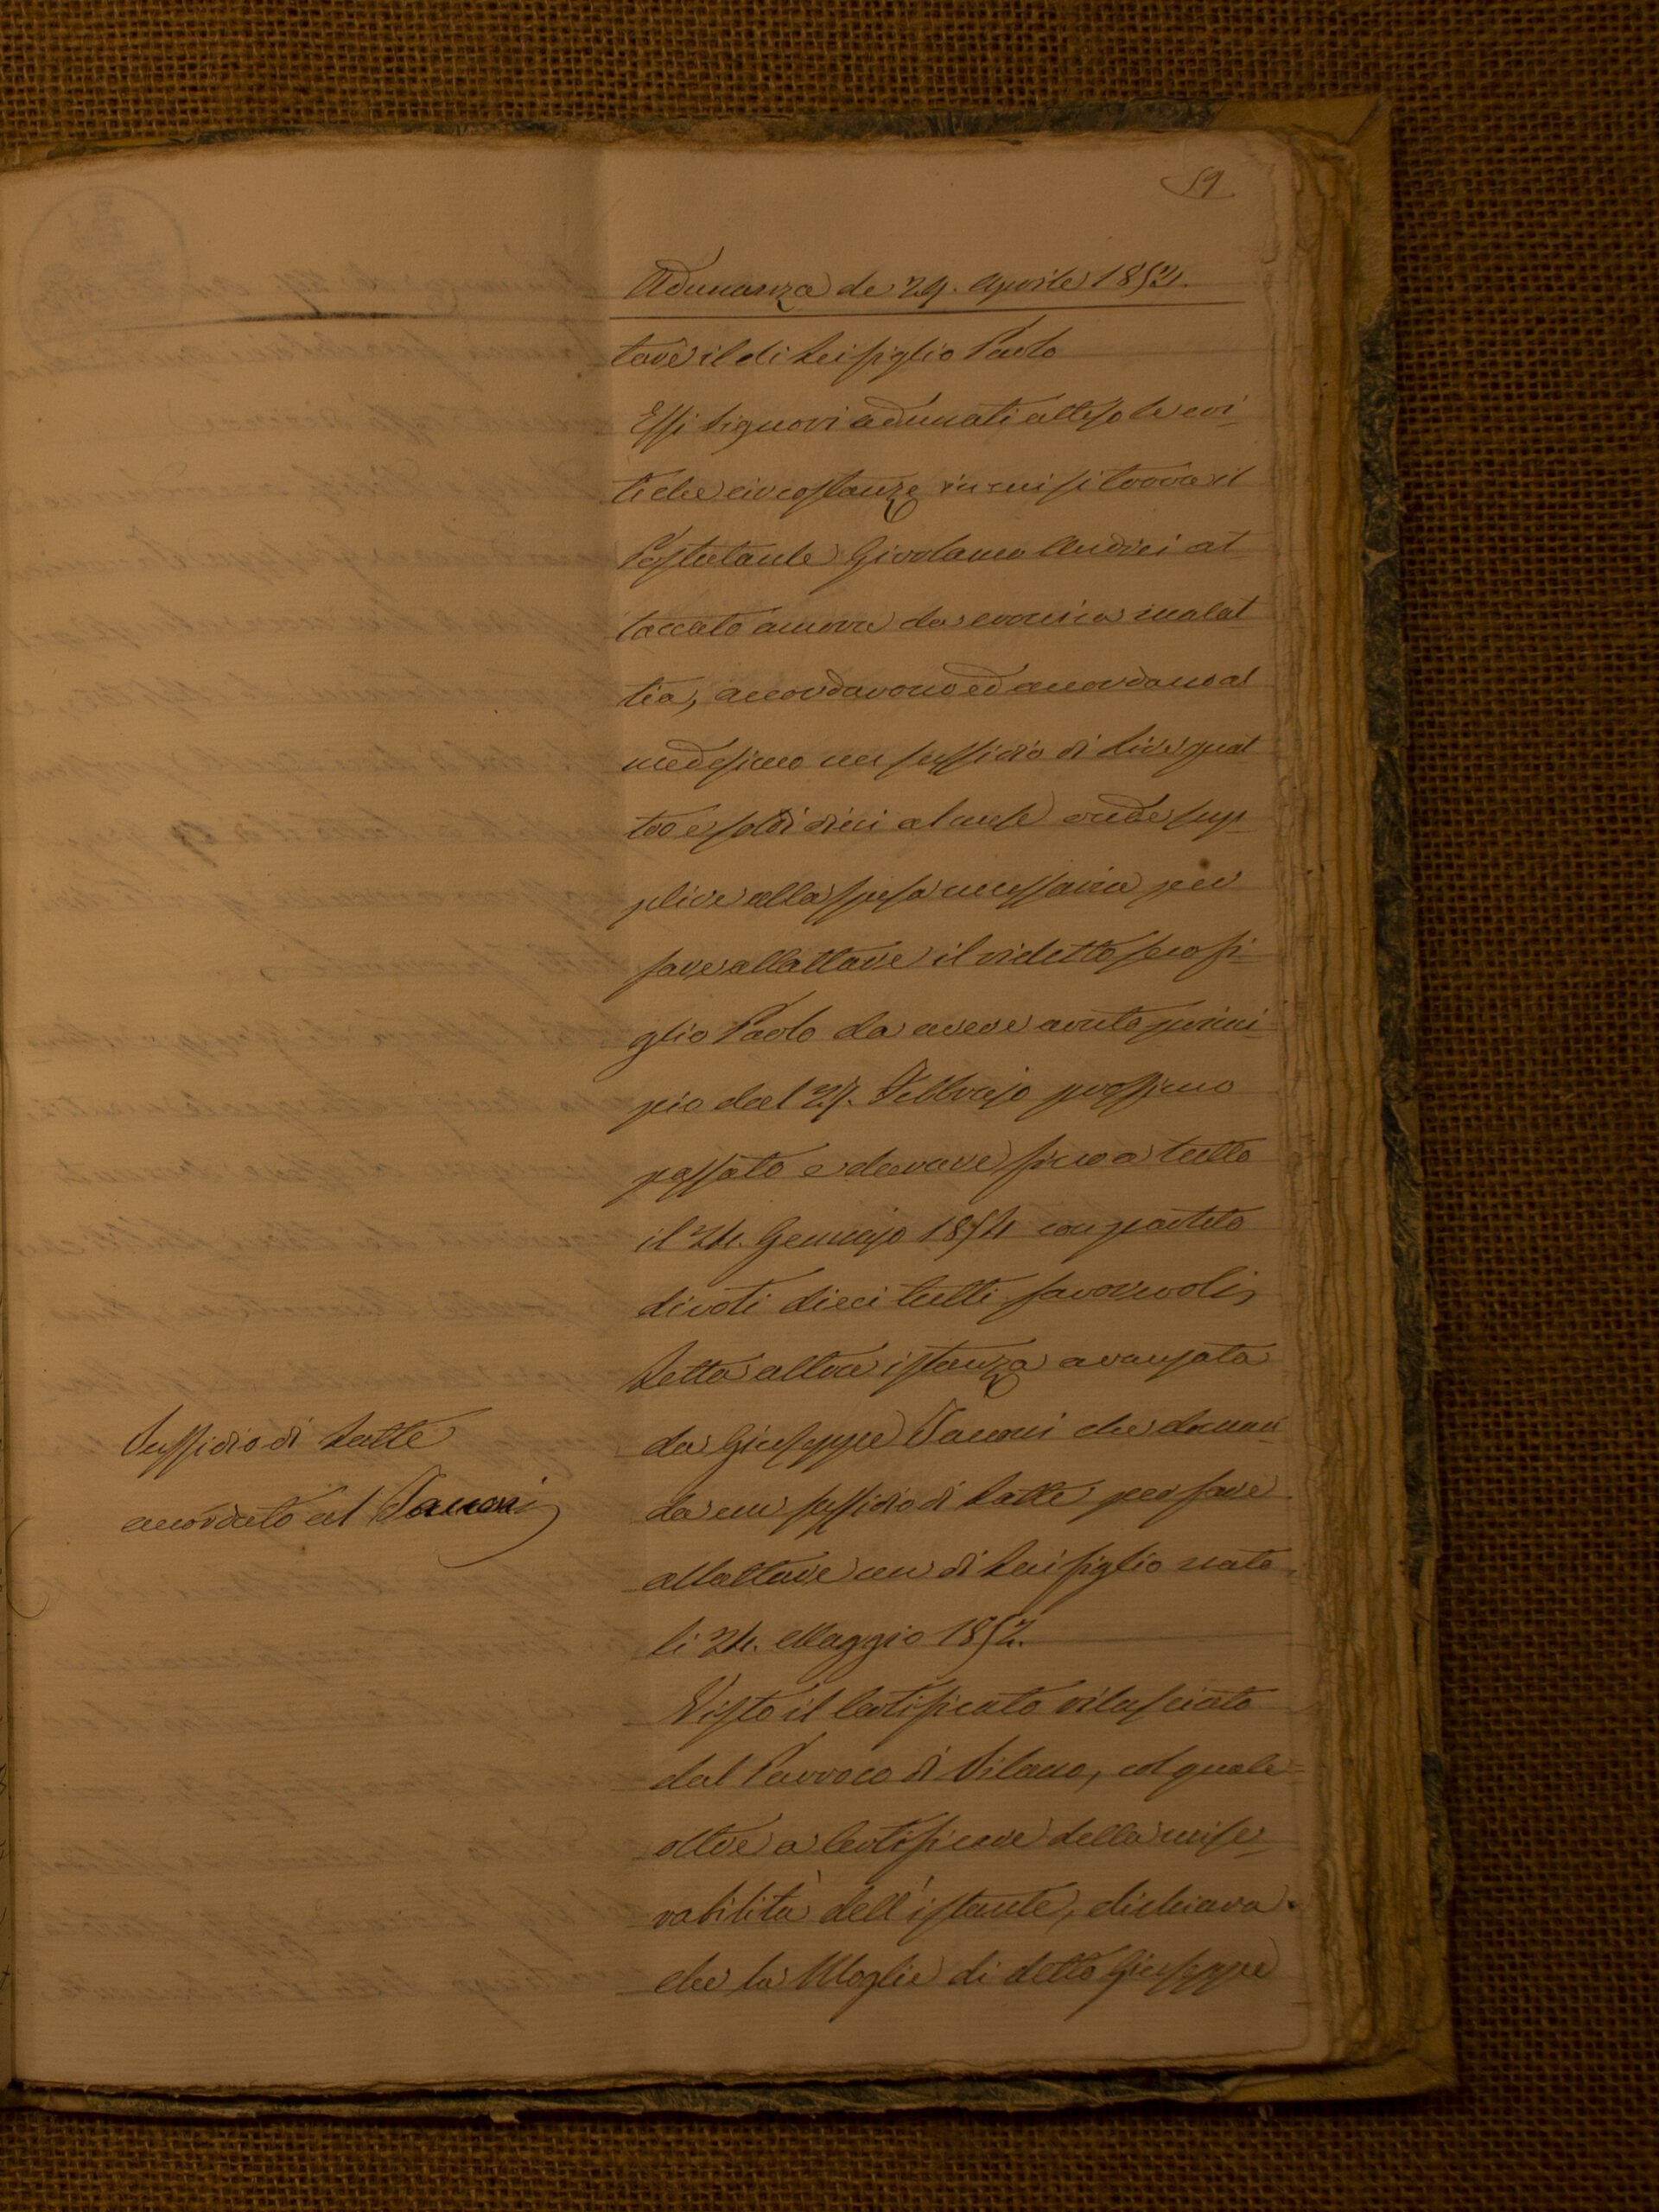 59
Adunanza de 29. Aprile 1853.
tare il di Lei figlio Paolo
Essi Signori adunati atteso le cri-
tiche circostanze in cui si trova il
Postulante Girolamo Andrei at
taccato ancora da cronica malat
tia, accordarono ed accordano al
medesimo un sussidio di Lire quat
tro e soldi dieci al mese onde sup-
plire alla spesa necessaria per
fare allattare il ridetto suo fi-
glio Paolo da avere avuto princi-
pio dal 27. Febbrajo prossimo
passato e durare fino a tutto
il 24. Gennajo 1854 con partito
di voti dieci tutti favorevoli,
Letta altra istanza avanzata
Sussidio di Latte
accordato al
da Giuseppe che doman-
da un sussidio di Latte per fare
allattare un di Lui figlio nato
li 24. Maggio 1852.
Visto il Certificato rilasciato
dal Parroco di Silano, col quale
oltre a Certificare della mise-
rabilità dell'istante, dichiara
che la Moglie di detto Giuseppe